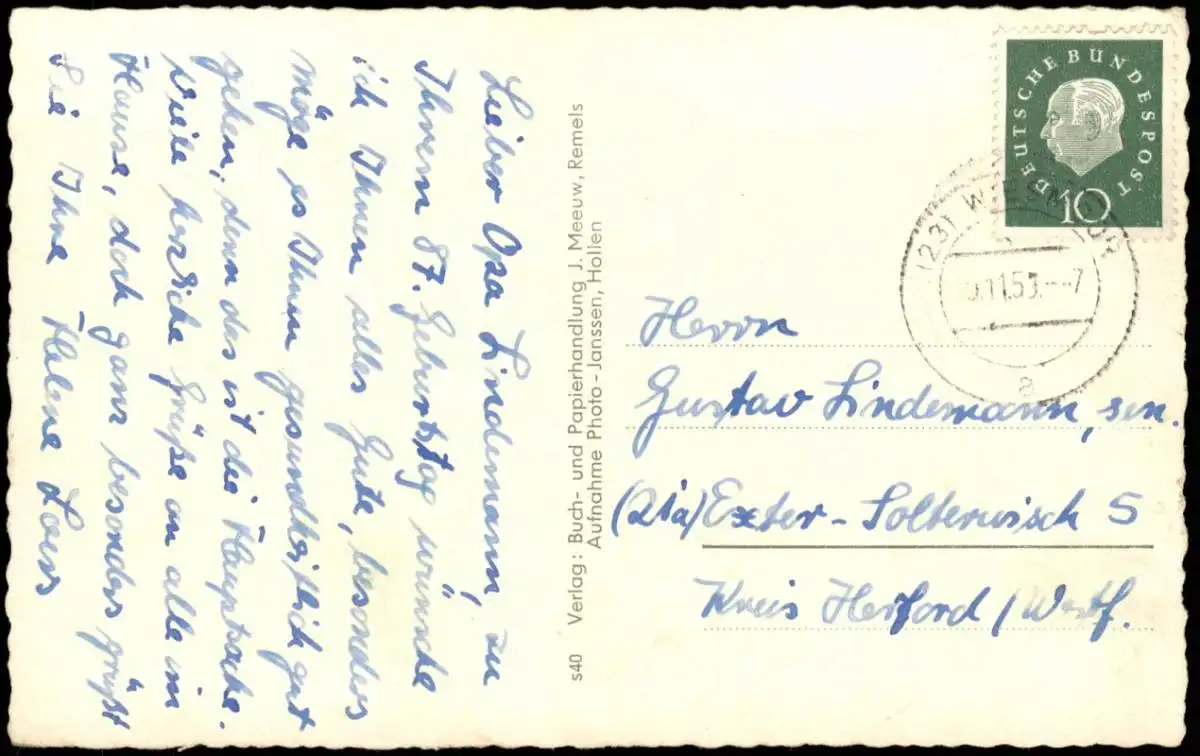 Lieber Opa Lindemann, zu
Ihrem 87. Geburtstag wünsche
ich Ihnen alles Gute, besonders
möge es Ihnen gesundheitlich gut
gehen, denn das ist die Hauptsache.
Viele herzliche Grüße an alle im
Hause, doch ganz besonders grüßt
Sie Ihre Helene
s40 Verlag: Buch- und Papierhandlung J. Meeuw, Remels
Aufnahme Photo-Janssen, Hollen
DEUTSCHE BUNDESPOST
10
(23)
a
Herrn
Gustav Lindemann, sen.
(21a) Exter-Solterwisch 5
Kreis Herford/Westf.